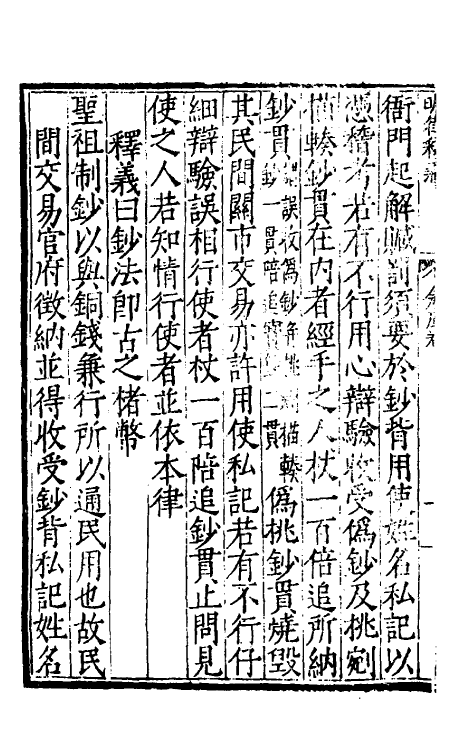 衙門起解贓罰須要於鈔背用使姓名私記以
憑稽考若有不行用心辯驗收受偽鈔及挑剜
描輳鈔貫在內者經手之人杖一百倍追所納
鈔貫偽挑鈔貫燒毀
其民間關市交易亦許用使私記若有不行仔
細辯驗誤相行使者杖一百陪追鈔貫止問見
使之人若知情行使者並依本律
釋義曰鈔法即古之楮幣
聖祖制鈔以與銅錢兼行所以通民用也故民
間交易官府徵納並得收受鈔背私記姓名